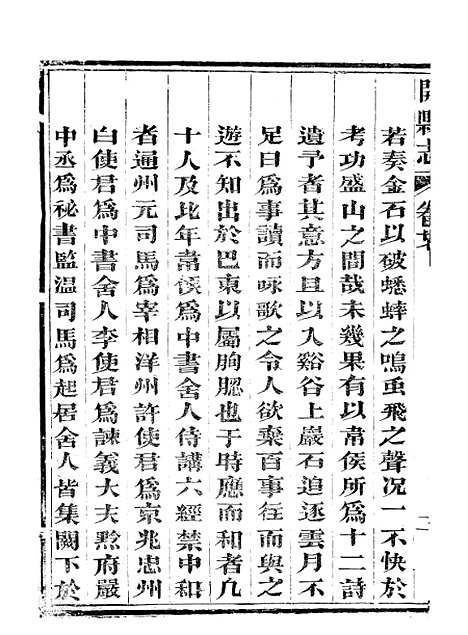 開縣志 卷
若奏金石以破蟋蟀之鳴䖝飛之聲况一不快於
考功盛山之間哉未幾果有以韋侯所為十二詩
遺予者其意方且以入谿谷上巖石追逐雲月不
足日為事讀而咏歌之令人欲棄百事往而與之
遊不知出於巴東以屬朐䏰也于時應而和者凡
十人及比年韋侯為中書舍人侍講六經禁中和
者通州元司馬為宰相洋州許使君為京兆忠州
白使君為中書舍人李使君為諫義大夫黔府嚴
中丞為祕書監溫司馬為起居舍人皆集闕下於